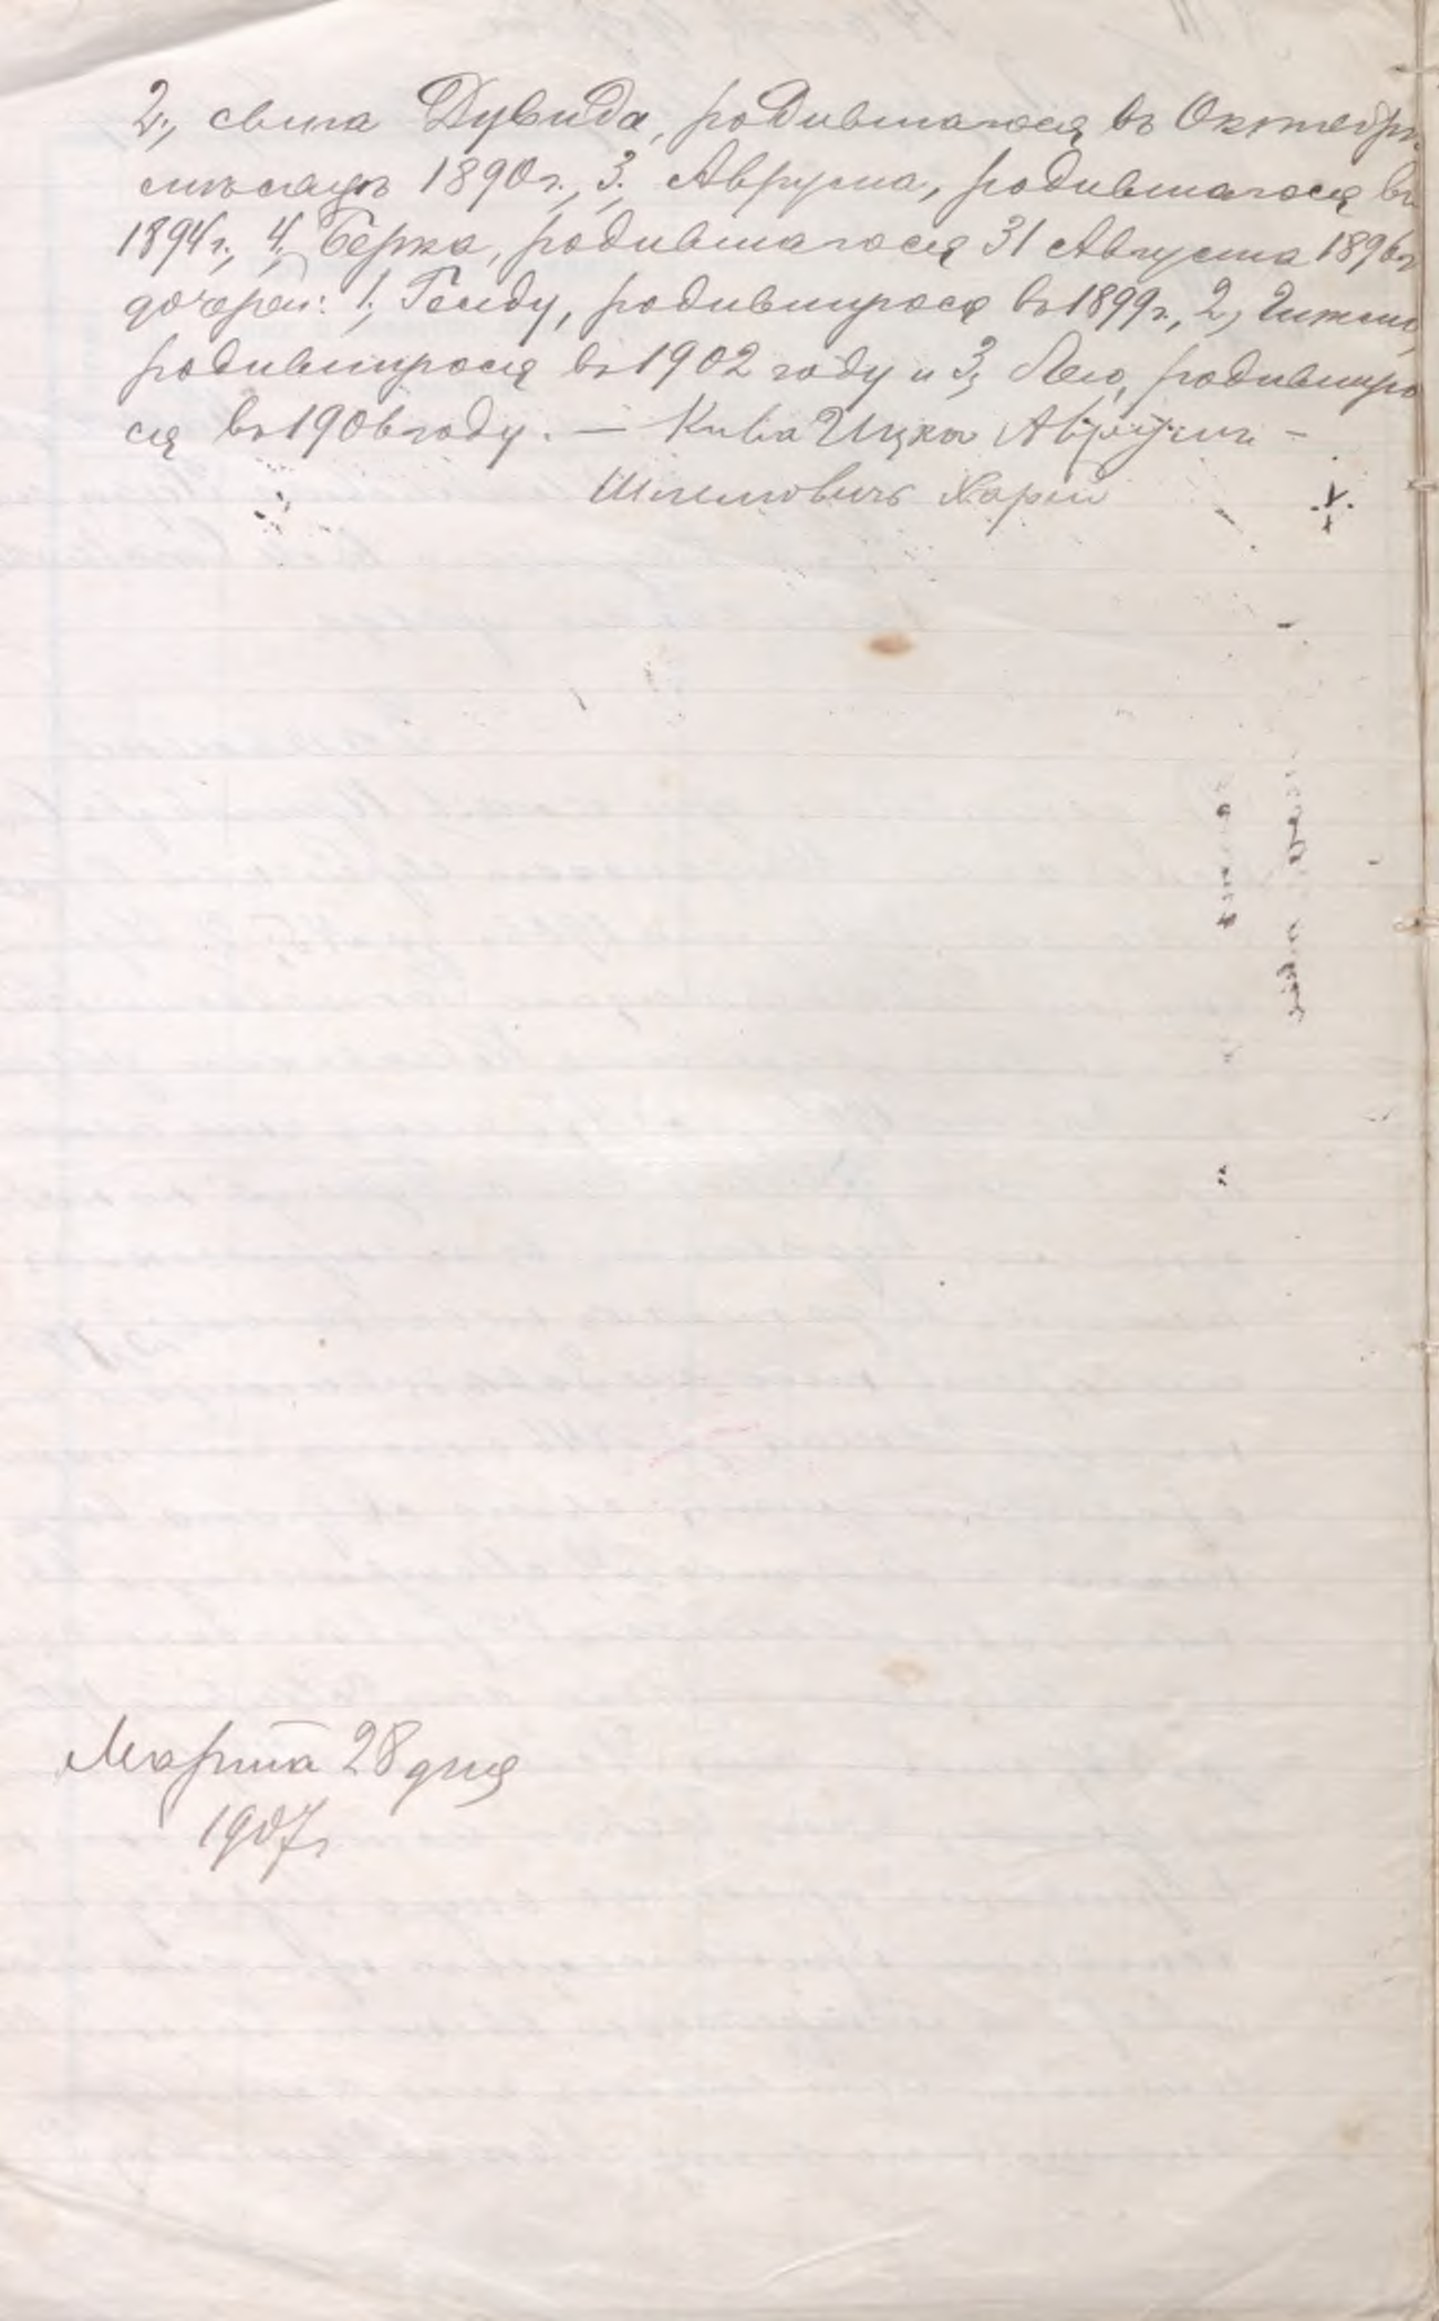 2, сына Дувида, родившагося въ Октябрѣ
мѣсяцѣ 1890г., 3, Аврума, родившагося въ
1894г., 4, Берка, родившагося 31 Августа 1896г
дочерей: 1, Генду, родившуюся въ 1899г., 2,
родившуюся въ 1902 году и 3, Лею, родившую
ся въ 1906 году. — Кива Ицко Аврумъ –
Шлемовичъ
Марта 28 дня
1907г